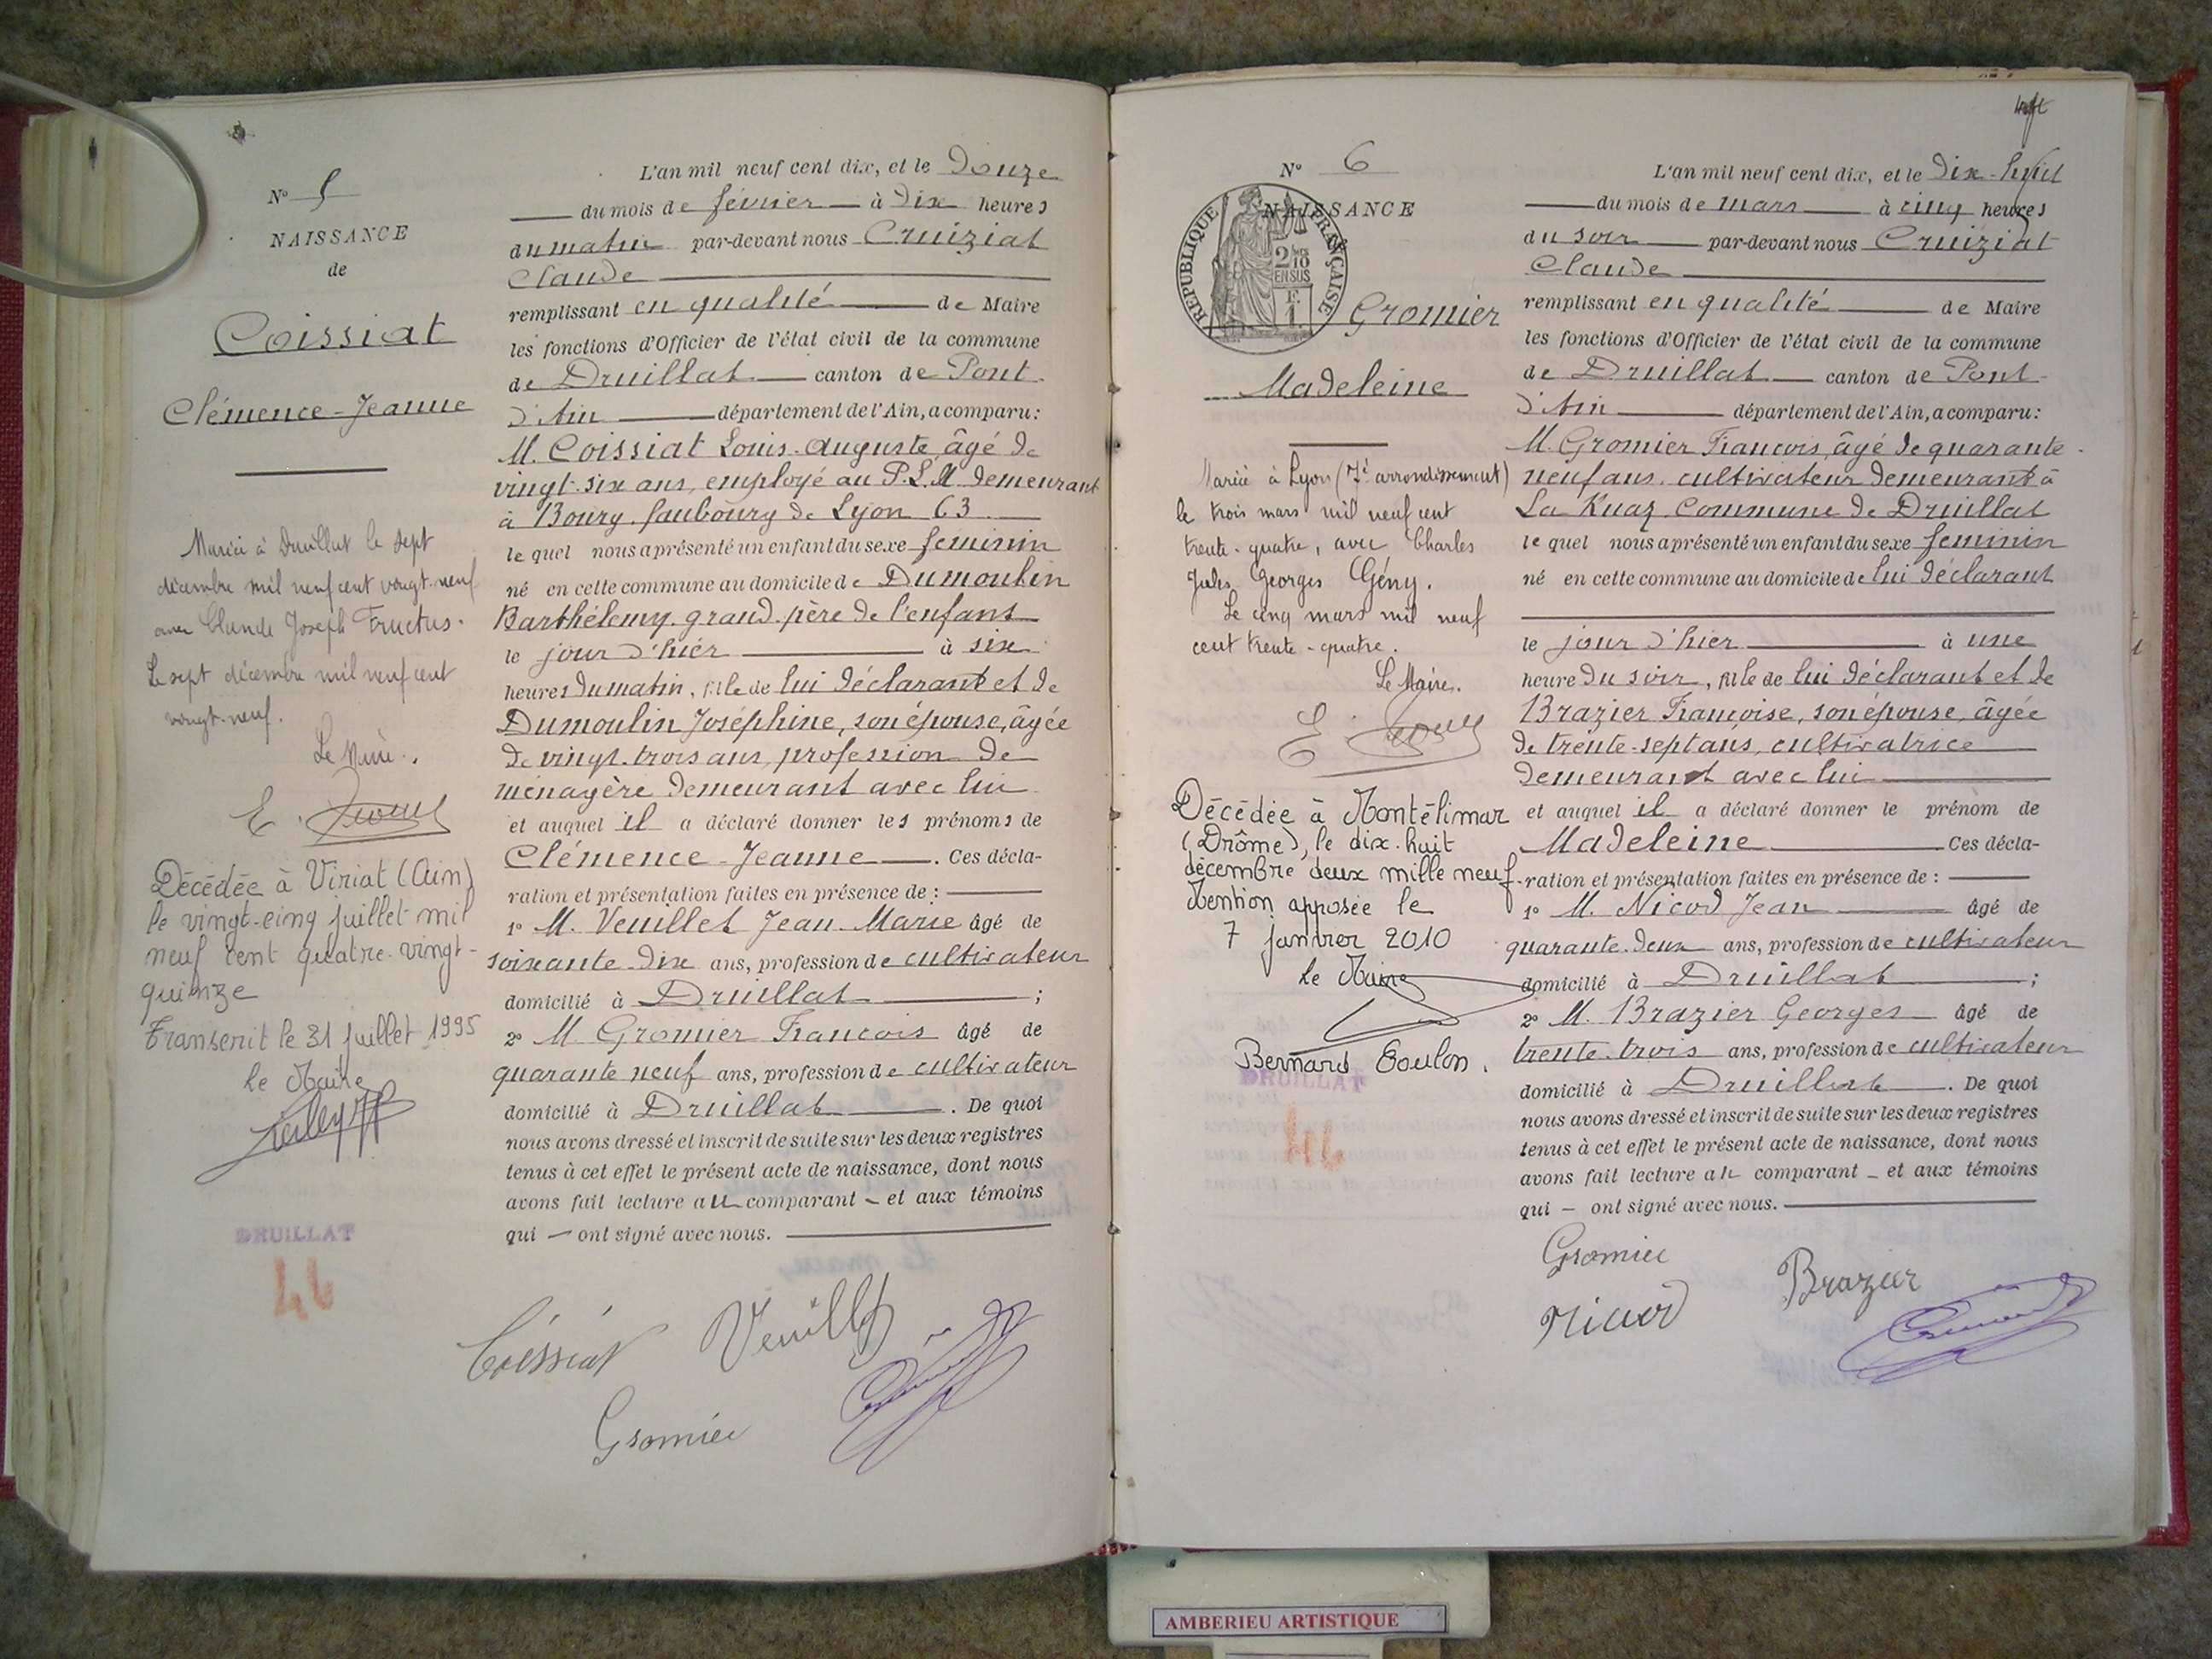 Nº 5
NAISSANCE
de
Coissiat
Clémence-Jeanne
Mariée à Druillat le sept
décembre mil neuf cent vingt-neuf
avec Claude Joseph Fructus.
Le sept décembre mil neuf cent
vingt-neuf.
Le Maire.
E.
Décédée à Viriat (Ain)
le vingt-cinq juillet mil
neuf cent quatre-vingt-
quinze
Transcrit le 31 juillet 1995
le Maire
DRUILLAT
L'an mil neuf cent dix, et le Douze
du mois de février à Dix heures
du matin par-devant nous Cruiziat
Claude
remplissant en qualité de Maire
les fonctions d'Officier de l'état civil de la commune
de Druillat canton de Pont-
d'Ain département de l'Ain, a comparu:
M. Coissiat Louis-Auguste, âgé de
vingt-six ans, employé au P.L.M. demeurant
à Bourg, faubourg de Lyon 63
le quel nous a présenté un enfant du sexe féminin
né en cette commune au domicile de Dumoulin
Barthélemy, grand-père de l'enfant
le jour d'hier à six
heures du matin, fille de lui déclarant et de
Dumoulin Joséphine, son épouse, âgée
de vingt-trois ans, profession de
ménagère demeurant avec lui
et auquel il a déclaré donner les prénoms de
Clémence-Jeanne. Ces décla-
ration et présentation faites en présence de :
1º M. Veuillet Jean-Marie âgé de
soixante-dix ans, profession de cultivateur
domicilié à Druillat ;
2º M. Gromier Francois âgé de
quarante neuf ans, profession de cultivateur
domicilié à Druillat. De quoi
nous avons dressé et inscrit de suite sur les deux registres
tenus à cet effet le présent acte de naissance, dont nous
avons fait lecture au comparant - et aux témoins
qui - ont signé avec nous.
Coissiat Veuillet
Gromier
Nº 6
NAISSANCE
REPUBLIQUE FRANÇAISE
2/10
EN SUS
Gromier
Madeleine
Mariée à Lyon (7e arrondissement)
le trois mars mil neuf cent
trente-quatre, avec Charles
Jules Georges Gény.
Le cinq mars mil neuf
cent trente-quatre.
Le Maire.
E.
Décédée à Montélimar
(Drôme), le dix-huit
décembre deux mille neuf.
Mention apposée le
7 janvier 2010
le Maire
Bernard Coulon.
DRUILLAT
L'an mil neuf cent dix, et le Dix-huit
du mois de mars à cinq heures
du soir par-devant nous Cruiziat
Claude
remplissant en qualité de Maire
les fonctions d'Officier de l'état civil de la commune
de Druillat canton de Pont-
d'Ain département de l'Ain, a comparu:
M. Gromier Francois, âgé de quarante-
neuf ans, cultivateur demeurant à
La Ruaz, Commune de Druillat
le quel nous a présenté un enfant du sexe féminin
né en cette commune au domicile de lui déclarant
le jour d'hier à une
heure du soir, fille de lui déclarant et de
Brazier Françoise, son épouse, âgée
de trente-sept ans, cultivatrice
demeurant avec lui
et auquel il a déclaré donner le prénom de
Madeleine Ces décla-
ration et présentation faites en présence de :
1º M. Nicod Jean âgé de
quarante-deux ans, profession de cultivateur
domicilié à Druillat ;
2º M. Brazier Georges âgé de
trente-trois ans, profession de cultivateur
domicilié à Druillat. De quoi
nous avons dressé et inscrit de suite sur les deux registres
tenus à cet effet le présent acte de naissance, dont nous
avons fait lecture au comparant - et aux témoins
qui - ont signé avec nous.
Gromier
Brazier
Nicod
AMBERIEU ARTISTIQUE